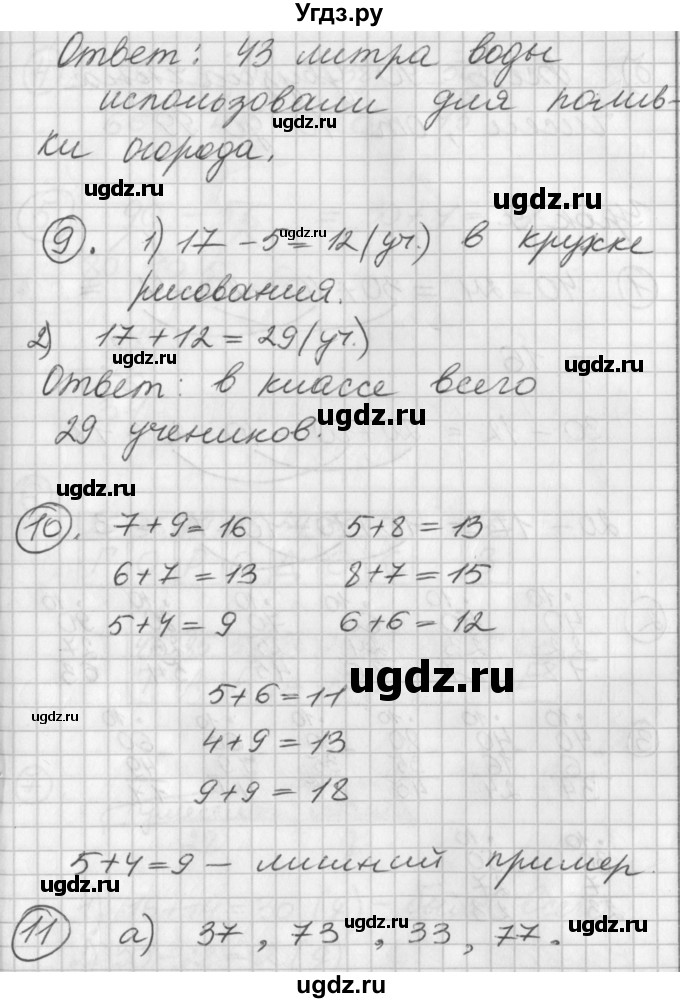 Угдз.ру
Ответ: 43 литра воды
использовали для полив-
ugdz.ru
ки огорода.
ugdz.ru
ugdz.ru
ugdz.ru
9. 1) 17 - 5 = 12 (уч.) в кружке
рисования.
2) 17 + 12 = 29 (уч.)
ugdz.ru
ugdz.ru
Ответ: в классе всего
ugdz.ru
29 учеников.
ugdz.ru
10. 7 + 9 = 16 5 + 8 = 13
6 + 7 = 13 8 + 7 = 15
5 + 4 = 9 6 + 6 = 12
ugdz.ru
5 + 6 = 11
ugdz.ru
4 + 9 = 13
9 + 9 = 18
5 + 4 = 9 – лишний пример.
ugdz.ru
ugdz.ru
11 а) 37, 73, 33, 77.
ugdz.ru
ugdz.ru